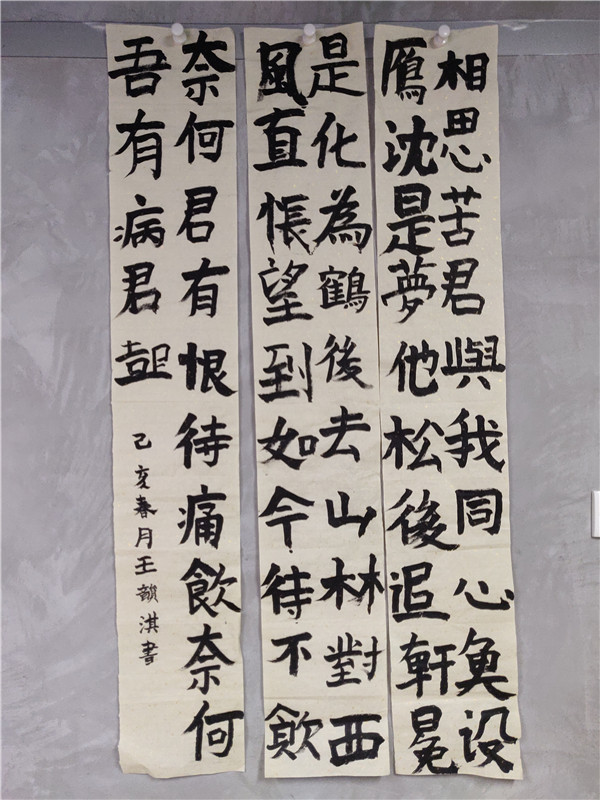 相思苦君與我同心魚没
鴈沈是夢他松後追軒冕
是化為鶴後去山林對西
風直悵望到如今待不飲
奈何君有恨待痛飲奈何
吾有病君
己亥春月王韻淇書